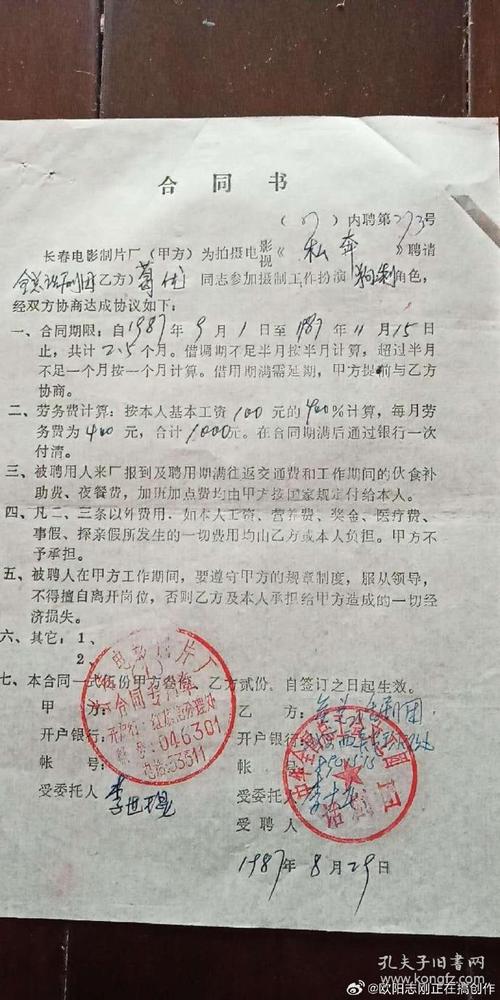 合同书
(87)内聘第273号
长春电影制片厂(甲方)为拍摄电影视《私奔》聘请
全总话剧团(乙方)葛优同志参加摄制工作扮演狗剩角色,
经双方协商达成协议如下:
一、合同期限:自1987年9月1日至1987年11月15日
止,共计2.5个月。借调期不足半月按半月计算,超过半月
不足一个月按一个月计算。借用期满需延期,甲方提前与乙方
协商。
二、劳务费计算:按本人基本工资100元的400%计算,每月劳
务费为400元,合计1000元。在合同期满后通过银行一次
付清。
三、被聘用人来厂报到及聘用期满往返交通费和工作期间的伙食补
助费、夜餐费,加班加点费均由甲方按国家规定付给本人。
四、凡二、三条以外费用.如本人工资、营养费、奖金、医疗费、
事假、探亲假所发生的一切费用均由乙方或本人负担。甲方不
予承担。
五、被聘人在甲方工作期间,要遵守甲方的规章制度,服从领导,
不得擅自离开岗位,否则乙方及本人承担给甲方造成的一切经
济损失。
六、其它:1、
2、
七、本合同一式伍份甲方叁份,乙方贰份。自签订之日起生效。
甲方:
乙方:全总话剧团
开户银行:
开户银行:
帐号:
帐号:
受委托人 李世琨
受委托人
受聘人
1987年8月29日
电影制片厂
合同专用章
046301
电话53311
话剧团
孔夫子旧书网
kongfz.com
@欧阳志刚正在搞创作